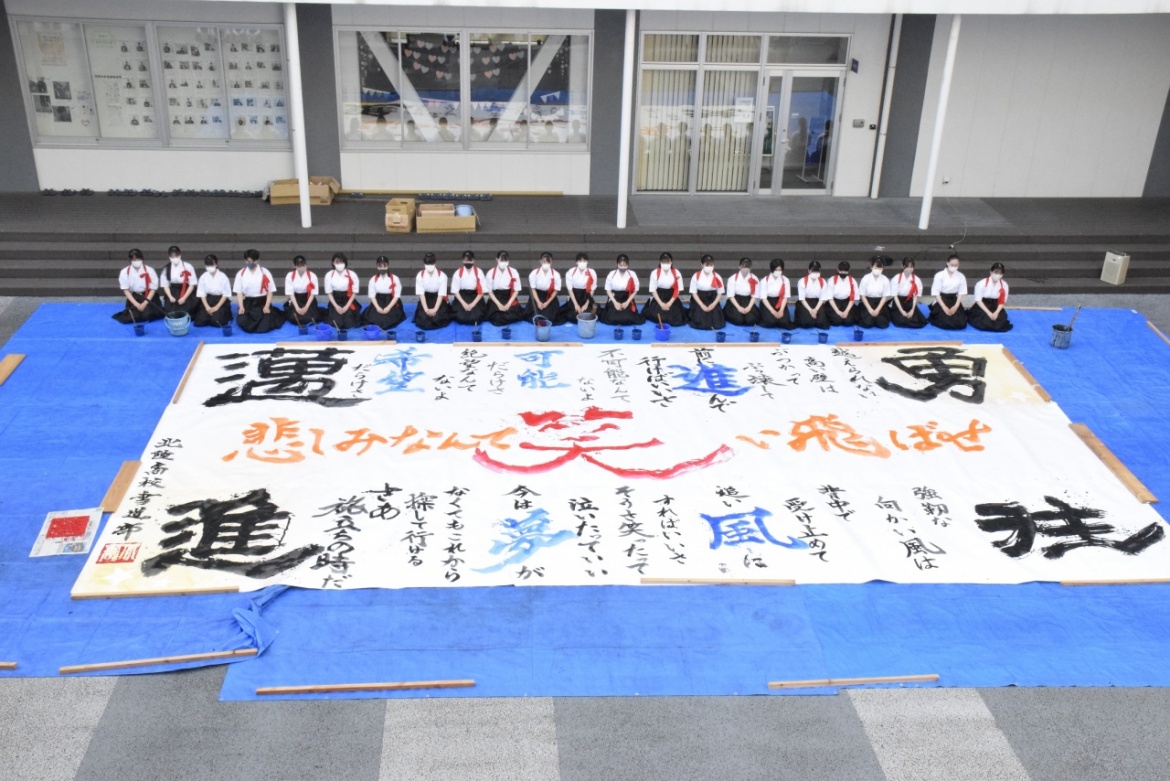 勇
越えられない
高い壁は
ぶつかって
ぶっ壊して
前に進んで
行けばいいさ
不可能なんて
ないよ
可能
だらけさ
絶望なんて
ないよ
希望
だらけさ
邁
悲しみなんて笑い飛ばせ
往
向かい風は
背中で
受け止めて
追い風に
すればいいさ
そうさ笑たって
泣いたっていい
今は夢が
なくてもこれから
探して行ける
さあ
旅立ちの時だ
進
北陵高校書道部